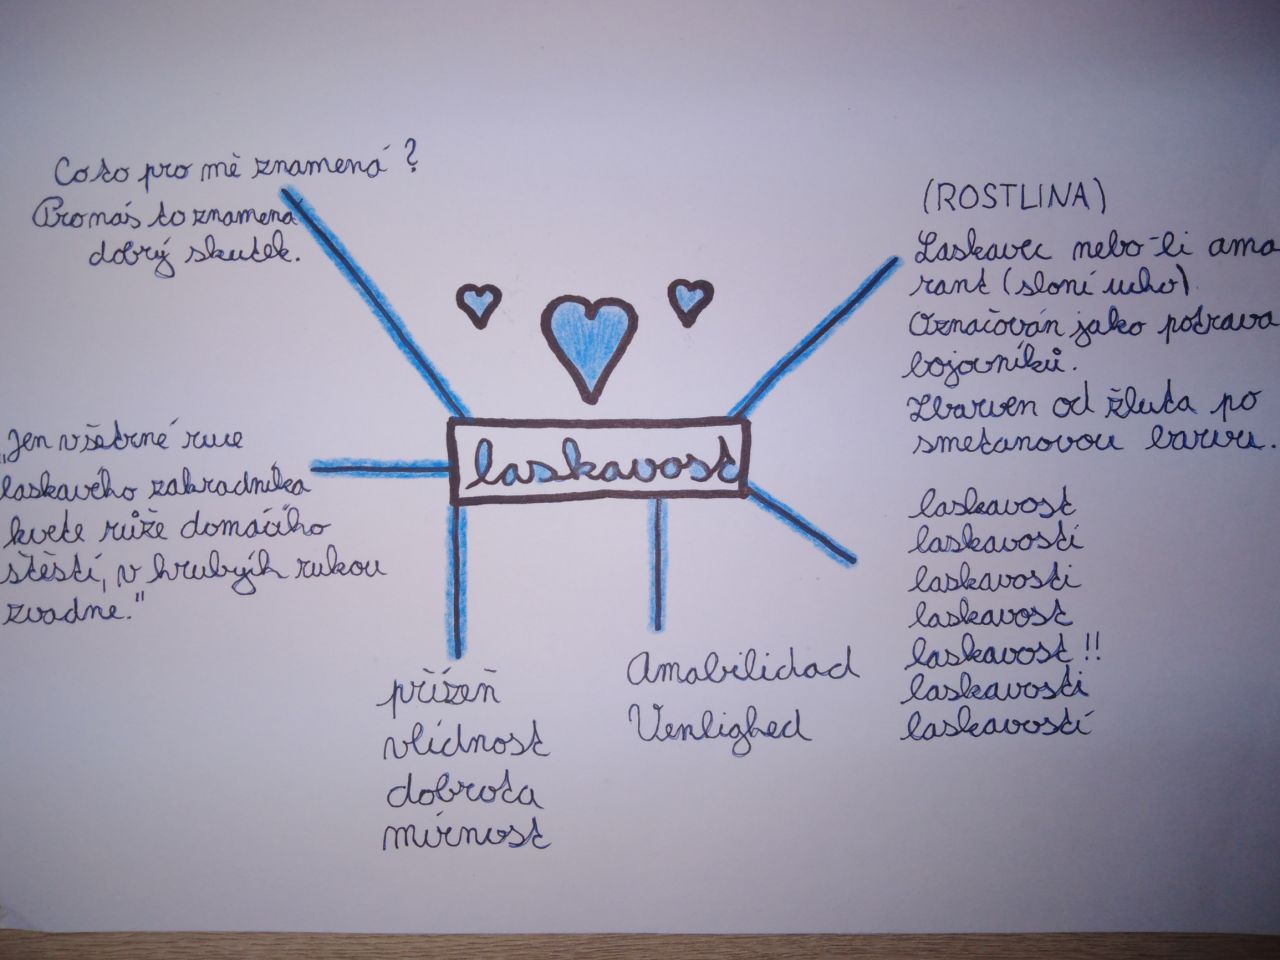 Co to pro mě znamená?
Pro nás to znamená
dobrý skutek.
(ROSTLINA)
Laskavec nebo-li ama
rant (sloní ucho)
Označován jako potrava
bojovníků.
Zbarven od žluta po
smetanovou barvu.
laskavost
„Jen v šetrné ruce
laskavého zahradníka
kvete růže domácího
štěstí, v hrubých rukou
zvadne."
laskavost
laskavosti
laskavosti
laskavost
laskavost!!
laskavosti
laskavostí
přízeň
vlídnost
dobrota
mírnost
Amabilidad
Venlighed